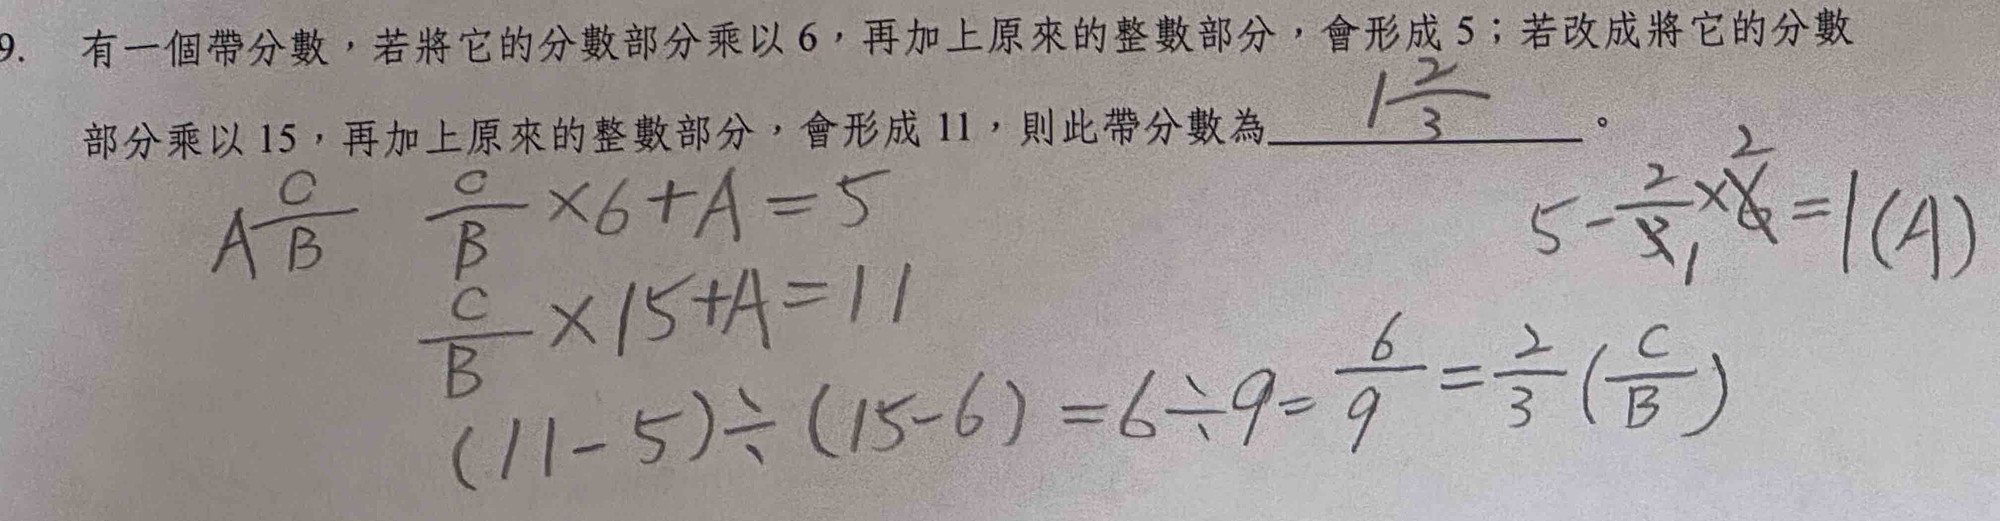 9. 有一個帶分數，若將它的分數部分乘以 6，再加上原來的整數部分，會形成 5；若改成將它的分數
部分乘以 15，再加上原來的整數部分，會形成 11，則此帶分數為 1 2/3 。
A C/B
C/B ×6+A=5
5- 2/3 ×6=1(A)
2
1
C/B ×15+A=11
(11-5)÷(15-6)=6÷9= 6/9 = 2/3 (C/B)